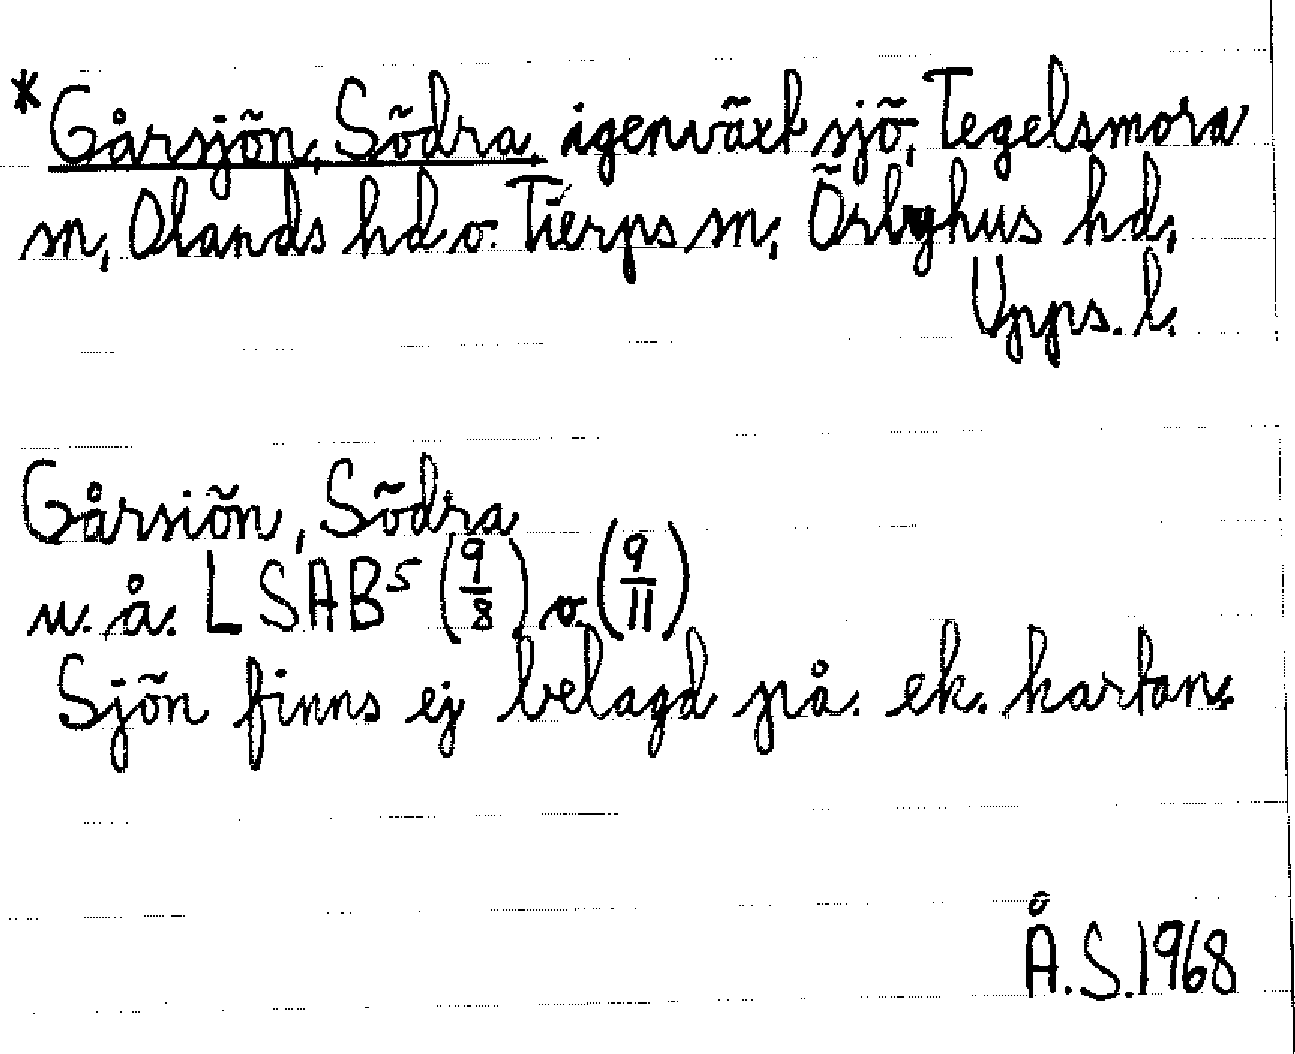 *Gårsjön, Södra, igenväxt sjö, Tegelsmora
sn, Olands hd o. Tierps sn, Örbyhus hd,
Upps. l.
Gårsiön, Södra
u. å. LSAB⁵ (9/8) o. (9/11)
Sjön finns ej belagd på ek. kartan.
Å.S. 1968